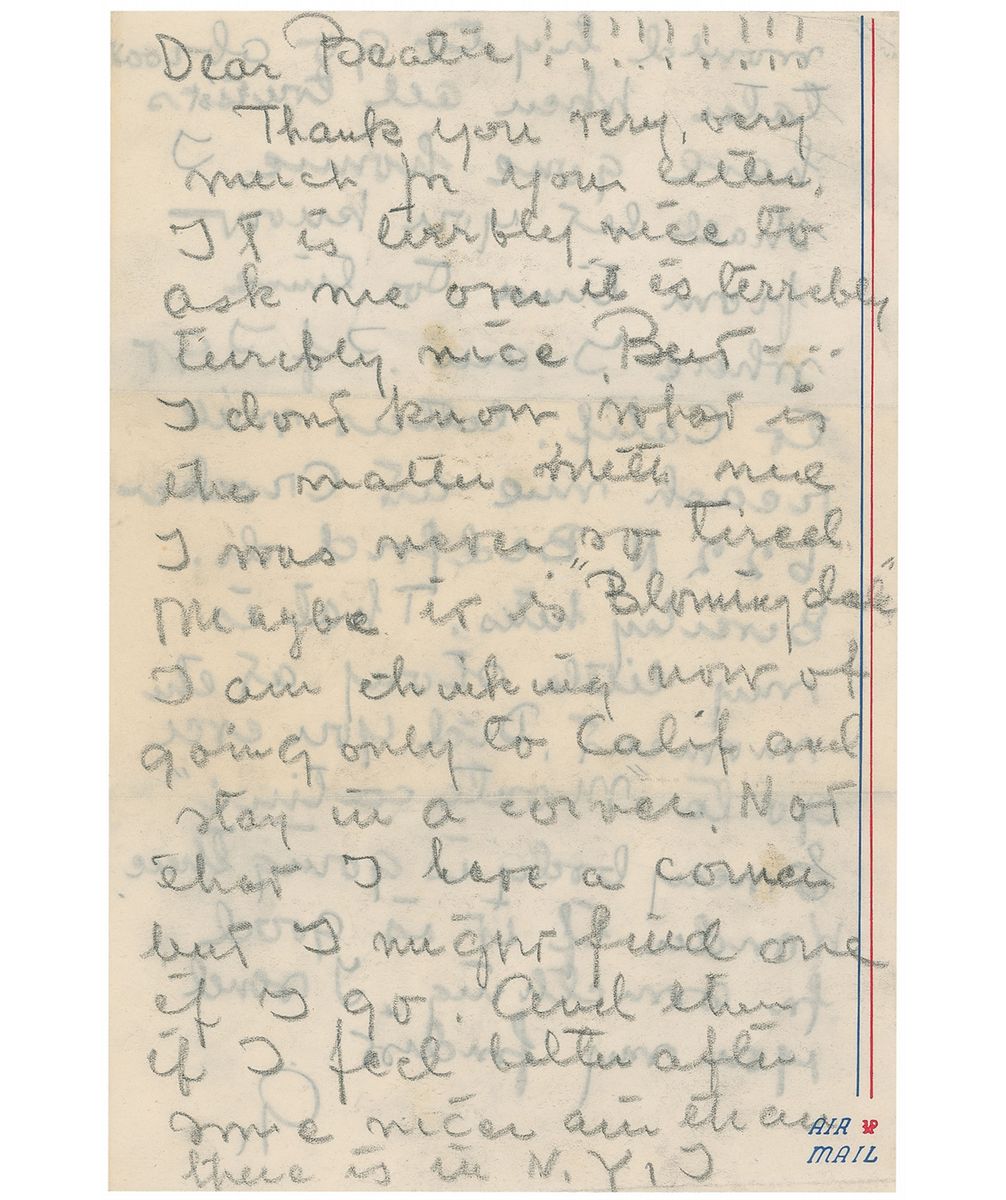 Dear Beatie!!!!!!!!!
Thank you very, very
much for your letter.
It is terrbly nice to
ask me over it is terribly
terribly nice. But ...
I dont know what is
the matter with me
I was never so tired
Maybe it is "Blomingdale"
I am thinking now of
going only to Calif and
stay in a corner. Not
that I have a corner
but I might find one
if I go. And then
if I feel better after
some nicer air than
there is in N.Y, I
AIR
MAIL